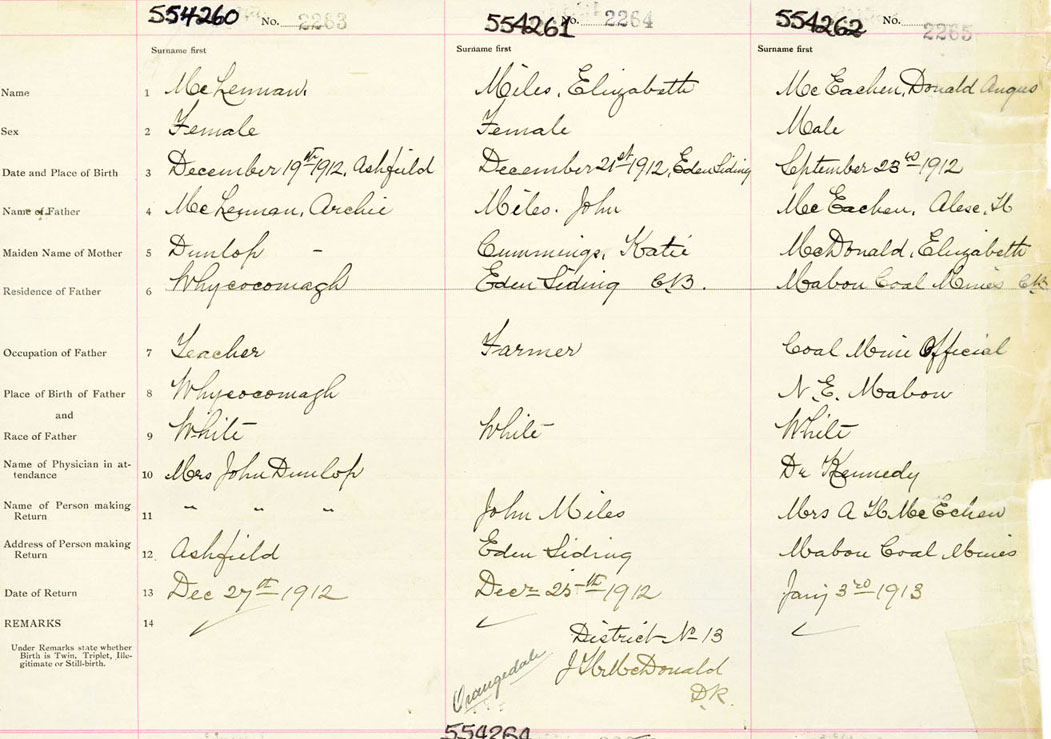 554260 No. 2263 554261 No. 2264 554262 No. 2265
Surname first Surname first Surname first
Name 1 McLennan. Miles, Elizabeth McEachen, Donald Angus
Sex 2 Female Female Male
Date and Place of Birth 3 December 19th 1912, Ashfield December 21st 1912, Eden Siding September 23rd 1912
Name of Father 4 McLennan, Archie Miles. John McEachen, H
Maiden Name of Mother 5 Dunlop - Cummings, Katie McDonald, Elizabeth
Residence of Father 6 Whycocomagh Eden Siding C.B. Mabou Coal Mines C.B.
Occupation of Father 7 Teacher Farmer Coal Mine Official
Place of Birth of Father 8 Whycocomagh N.E. Mabou
and
Race of Father 9 White White White
Name of Physician in at-
tendance 10 Mrs John Dunlop Dr Kennedy
Name of Person making
Return 11 " " " John Miles Mrs A H McEchen
Address of Person making
Return 12 Ashfield Eden Siding Mabou Coal Mines
Date of Return 13 Dec 27th 1912 Decr 25th 1912 Jany 3rd 1913
REMARKS 14
Under Remarks state whether
Birth is Twin, Triplet, Ille-
gitimate or Still-birth.
District No 13
McDonald
D.R.
Orangedale
554264